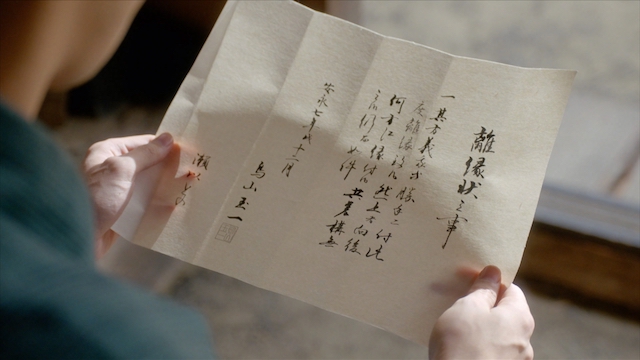 離縁状之事
一其方義我等勝手ニ付此
度離縁致候然上者向後
何方江縁付候共差構無
之候仍而如件
安永七年戌十二月
鳥山玉一